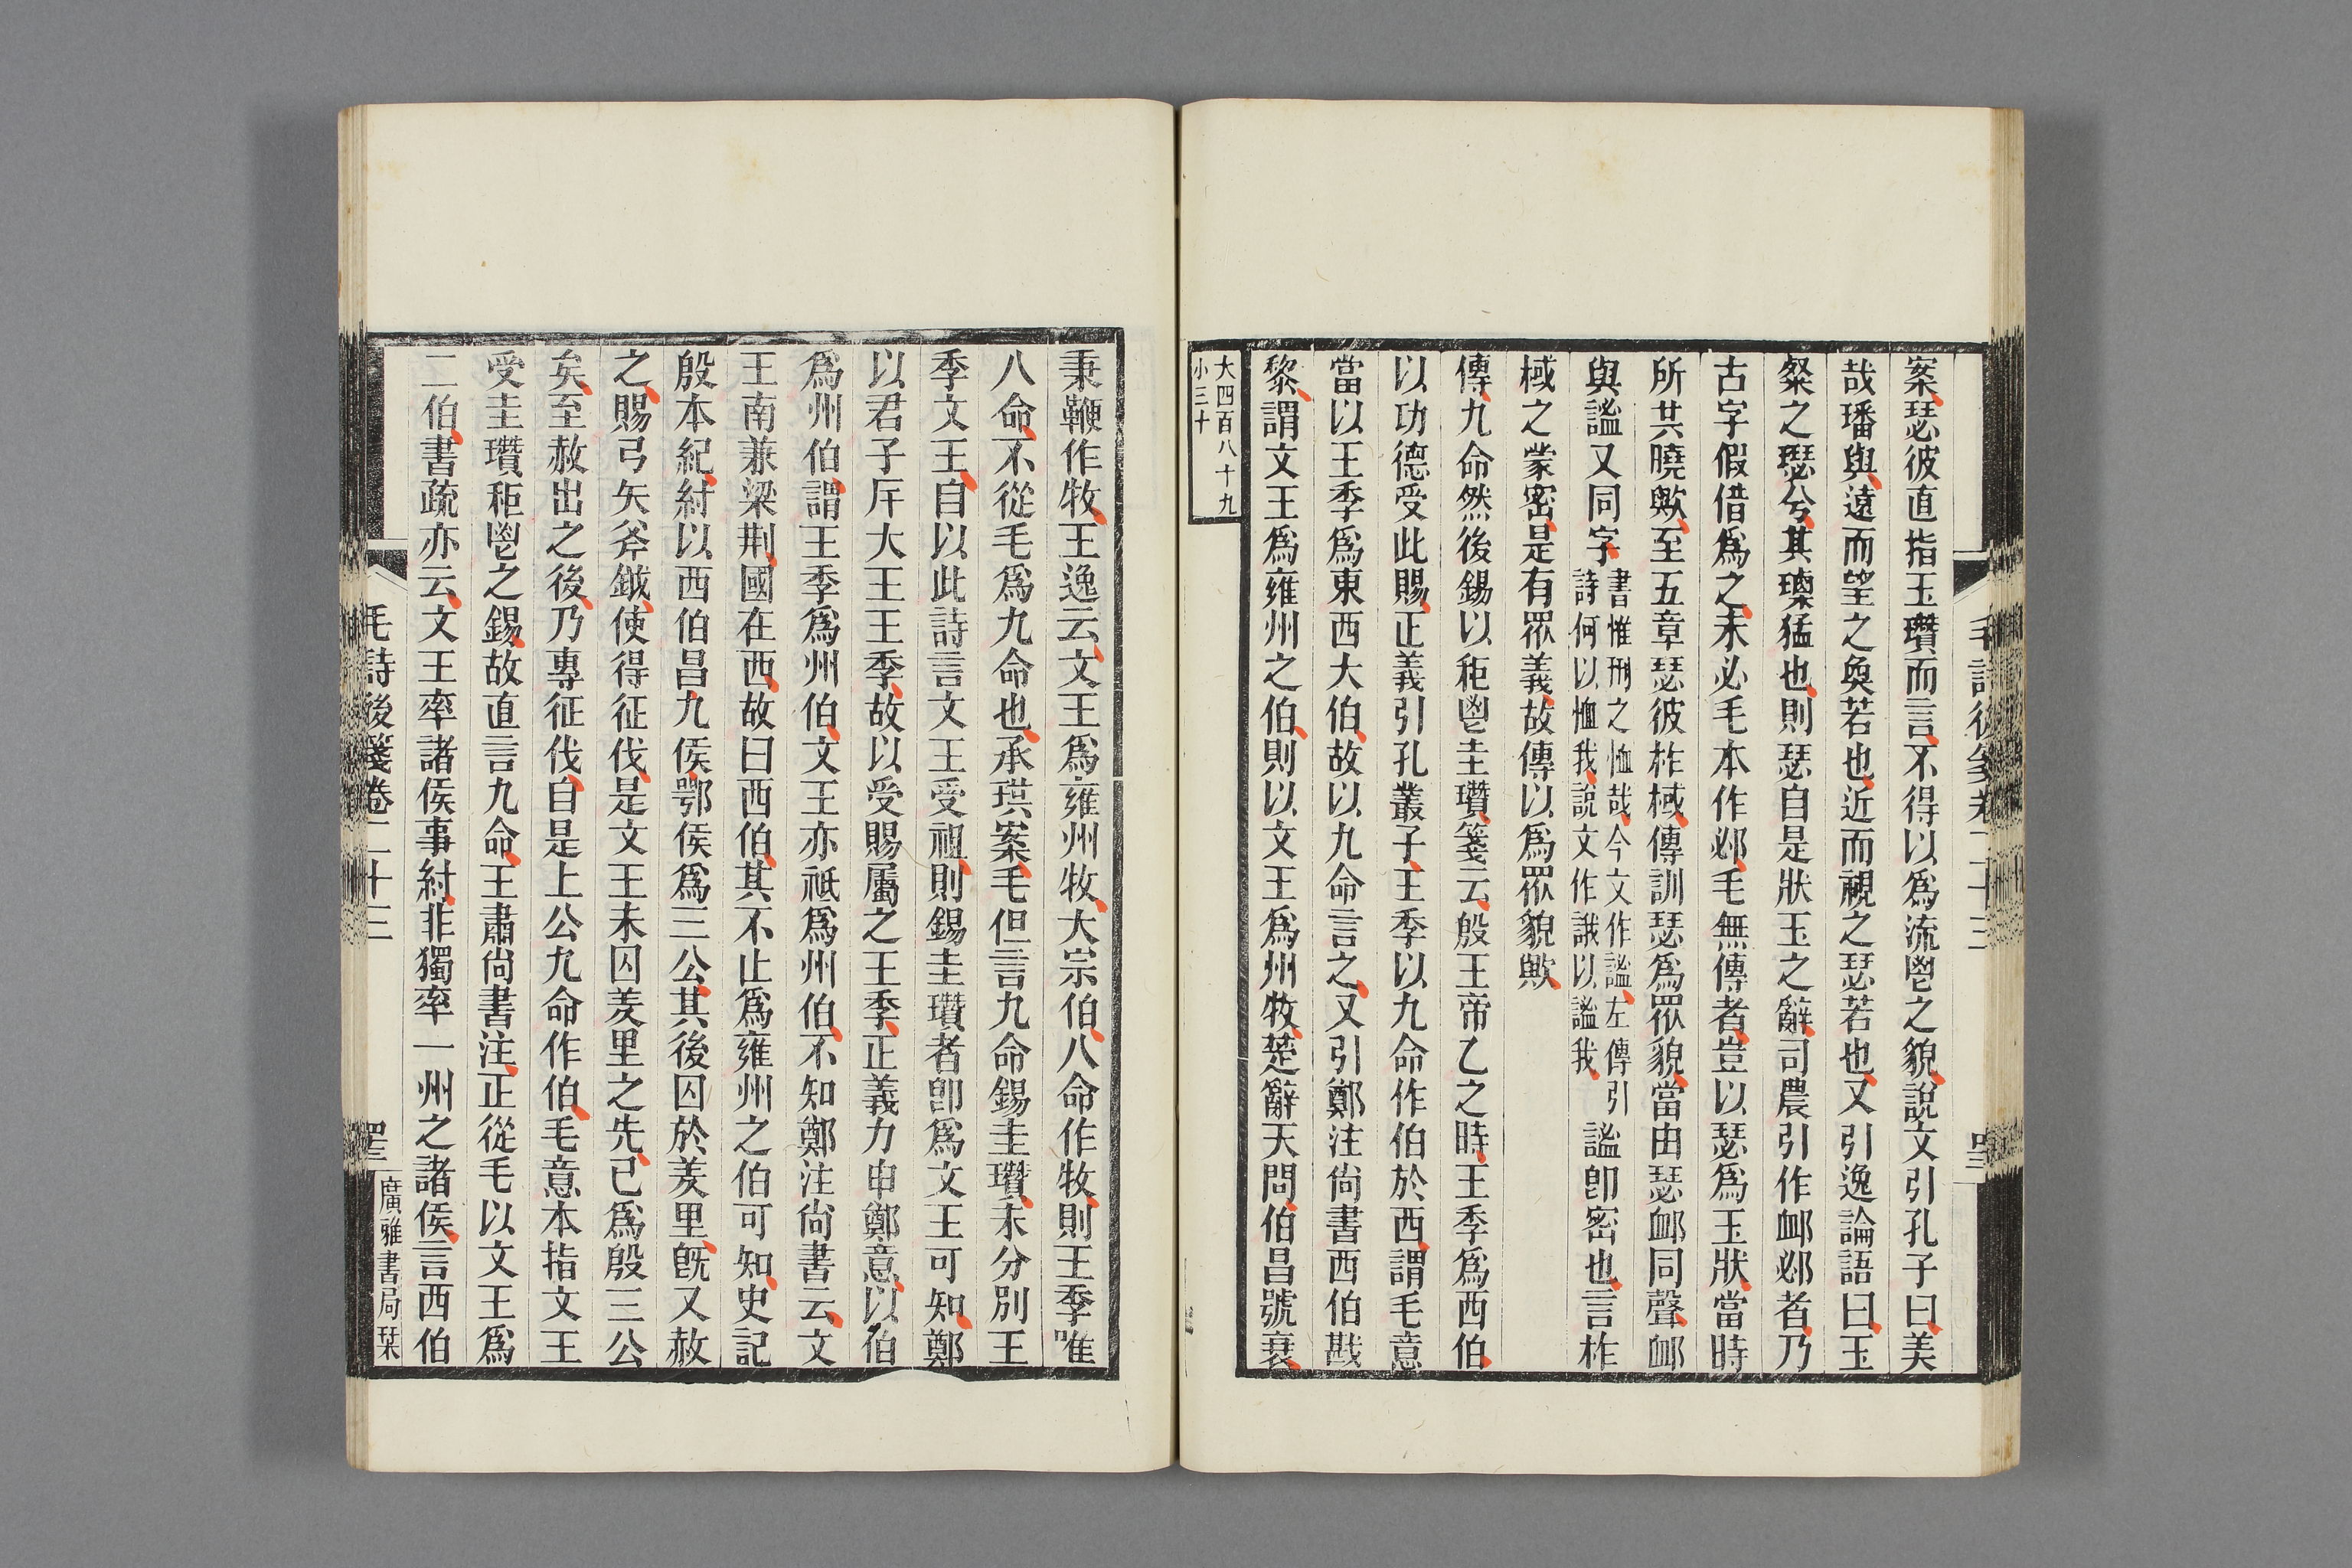 案瑟彼直指玉瓚而言不得以爲流鬯之貌說文引孔子曰美
哉璠與遠而望之奐若也近而視之瑟若也又引逸論語曰玉
粲之璱兮其瓅猛也則瑟自是狀玉之辭司農引作卹邲者乃
古字假借爲之未必毛本作邲毛無傳者豈以瑟爲玉狀當時
所共曉歟至五章瑟彼柞棫傳訓瑟爲眾貌當由瑟卹同聲卹
與謐又同字
書惟刑之恤哉今文作謐左傳引
詩何以恤我說文作誐以謐我
謐卽密也言柞
棫之蒙密是有眾義故傳以爲眾貌歟
傳九命然後錫以秬鬯圭瓚箋云殷王帝乙之時王季爲西伯
以功德受此賜正義引孔叢子王季以九命作伯於西謂毛意
當以王季爲東西大伯故以九命言之又引鄭注尙書西伯戡
黎謂文王爲雍州之伯則以文王爲州牧楚辭天問伯昌號衰
大四百八十九
小三十
毛詩後箋卷二十三
秉鞭作牧王逸云文王爲雍州牧大宗伯八命作牧則王季唯
八命不從毛爲九命也承珙案毛但言九命錫圭瓚未分別王
季文王自以此詩言文王受祖則錫圭瓚者卽爲文王可知鄭
以君子斥大王王季故以受賜屬之王季正義力申鄭意以伯
爲州伯謂王季爲州伯文王亦祗爲州伯不知鄭注尙書云文
王南兼梁荆國在西故曰西伯其不止爲雍州之伯可知史記
殷本紀紂以西伯昌九侯鄂侯爲三公其後囚於羑里旣又赦
之賜弓矢斧鉞使得征伐是文王未囚羑里之先已爲殷三公
矣至赦出之後乃專征伐自是上公九命作伯毛意本指文王
受圭瓚秬鬯之錫故直言九命王肅尙書注正從毛以文王爲
二伯書疏亦云文王率諸侯事紂非獨率一州之諸侯言西伯
毛詩後箋卷二十三
廣雅書局栞